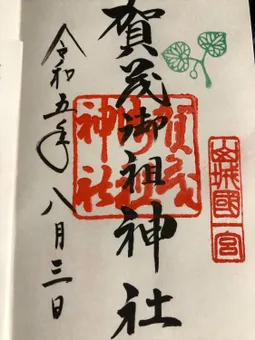 山城國一宮
賀茂御祖神社
賀茂御祖神社
令和五年八月三日